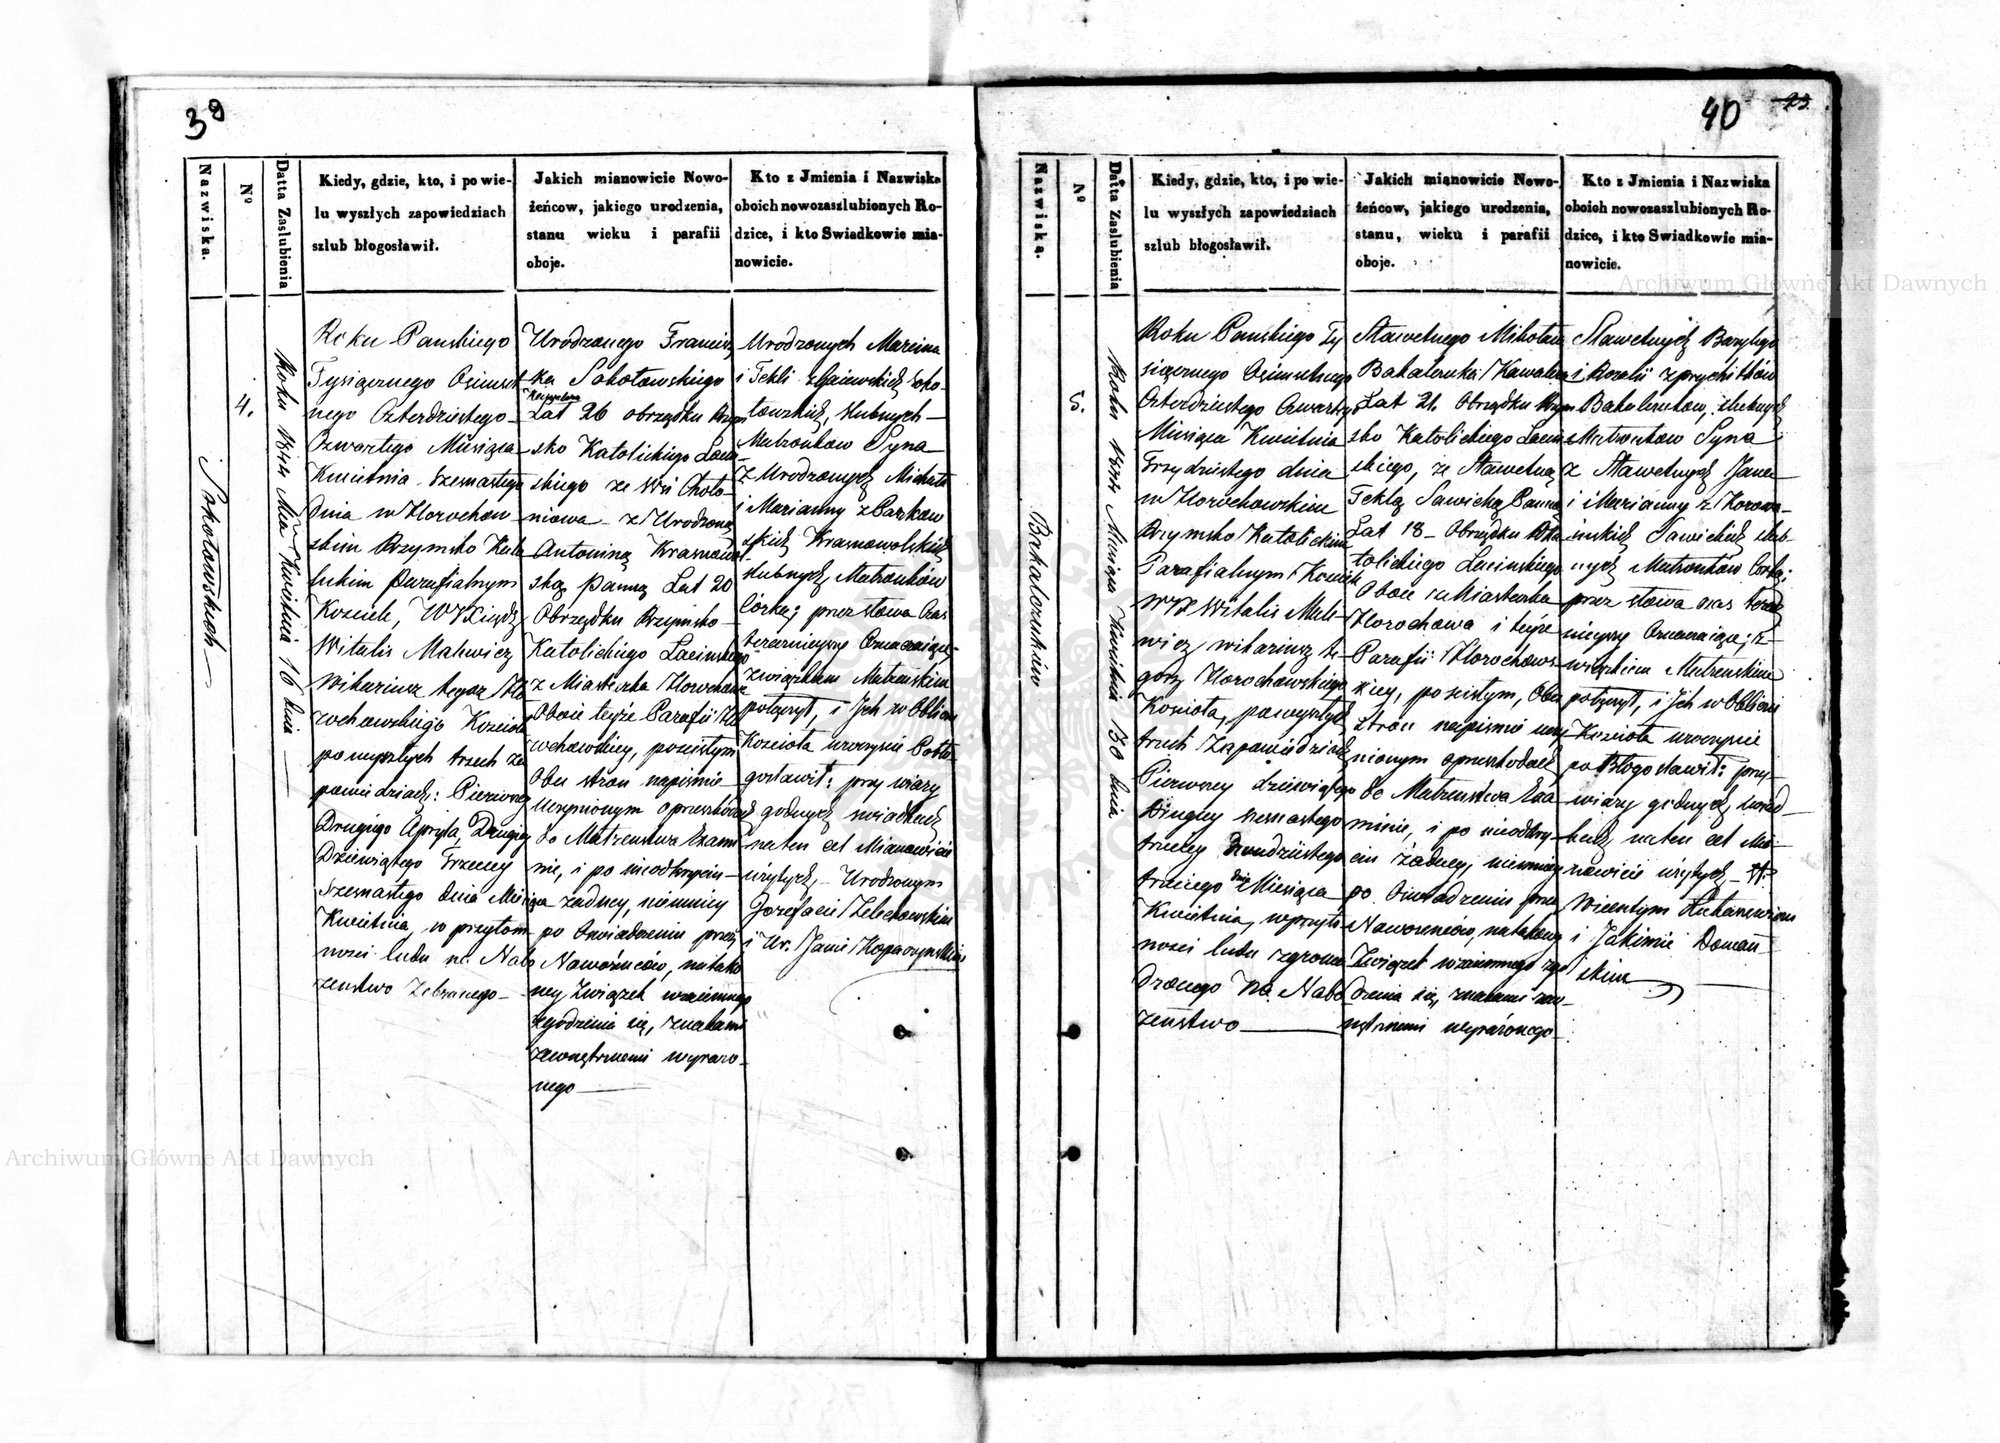 39
Nazwiska.
Nº
Datta Zaslubienia
Kiedy, gdzie, kto, i po wie-
lu wyszłych zapowiedziach
szlub błogosławił.
Jakich mianowicie Nowo-
żeńcow, jakiego urodzenia,
stanu wieku i parafii
oboje.
Kto z Jmienia i Nazwiska
oboich nowozaszlubionych Ro-
dzice, i kto Swiadkowie mia-
nowicie.
Sokołowskich
4.
Roku 1844 Mca Kwietnia 16 dnia
Roku Panskiego
Tysiącznego Osimset
nego Czterdziestego
Czwartego Miesiąca
Kwietnia Szesnastego
Dnia w Horochow
skim Rzymsko Kato
lickim parafialnym
Kosciele, WJXiądz
Witalis Malewicz
Wikariusz tegoż Ho
rochowskiego Koscioła
po wyszłych trzech za
powiedziach: Pierwszej
Drugiego Apryla, Drugiej
Dziewiątego Trzeciej
Szesnastego dnia Miesiąca
Kwietnia, w przytom
nosci ludu na Nabo
żenstwo Zebranego
Urodzonego Francisz
ka Sokołowskiego
Kawalera
Lat 26 obrządku Rzym
sko Katolickiego Łacin
skiego ze Wsi Choło-
niowa z Urodzoną
Antoniną Krasnowol
ską Panną Lat 20
Obrządku Rzymsko
Katolickiego Łacinskiego
z Miasteczka Horochowa
Oboie teyże Parafii Ho
rochowskiey, poscisłym
Obu stron napismie
uczynionym oprzeszkodach
do Małżenstwa Exami
nie, i po nieodkryciu
żadney, niemniey
po Oswiadczeniu przez
Nowożencow, na tako
wey Związek wzaiemnego
zgodzenia się, znakami
zewnętrznemi wyrażo-
nego
Urodzonych Marcina
i Tekli z Gaiewskich Soko-
łowskich, slubnych
Małżonkow Syna
z Urodzonych Michała
i Marianny z Parkow
skich Krasnowolskich
slubnych Małżonków
Córkę; przez słowa Czas
terazniejszy Oznaczaiące
związkiem Małżenskim
połączył, i Jch w Obliczu
Koscioła uroczyscie Pobło
gosławił: przy wiary
godnych swiadkach
na ten cel Mianowicie
użytych Urodzonym
Jozefacie Zelechowskim
i Ur. Janie Koparzynskim
40
23
Nazwiska.
Nº
Datta Zaslubienia
Kiedy, gdzie, kto, i po wie-
lu wyszłych zapowiedziach
szlub błogosławił.
Jakich mianowicie Nowo-
żeńcow, jakiego urodzenia,
stanu, wieku i parafii
oboje.
Kto z Jmienia i Nazwiska
oboich nowozaszlubionych Ro-
dzice, i kto Swiadkowie mia-
nowicie.
Bakalczuków
5.
Roku 1844 Miesiąca Kwietnia 30 dnia
Roku Panskiego Ty
siącznego Osimsetnego
Czterdziestego Czwartego
Miesiąca Kwietnia
Trzydziestego dnia
w Horochowskim
Rzymsko Katolickim
Parafialnym Kosciele
WJX Witalis Male-
wicz wikariusz te-
goż Horochowskiego
Koscioła, powyszłych
trzech Zapowiedziach
Pierwszey dziewiątego
Drugiey szesnastego
trzeciey dwudziestego
trzeciego dnia Miesiąca
Kwietnia, w przyto
mnosci ludu zgroma
dzonego Na Nabo
żeństwo
Sławetnego Mikołaia
Bakalczuka Kawalera
Lat 21. Obrządku Rzym
sko Katolickiego Łacin
skiego, ze Sławetną
Teklą Sawicką Panną
Lat 18 Obrządku Rz Ka
tolickiego Łacinskiego
Oboie z Miasteczka
Horochowa i teyże
Parafii Horochows
kiey, po scisłym, Obu
Stron napismie uczy
nionym oprzeszkodach
do Małzenstwa Exa
minie, i po nieodkry
ciu żadney, niemniey
po Oswiadczeniu przez
Nowożencow, na takowy
Związek wzaiemnego zgo
dzenia się, znakami zew
nętrznemi wyrażonego
Sławetnych Bazylego
i Rozalii z prychitków
Bakalczuków, slubnych
Małżonkow Syna
z Sławetnych Jana
i Marianny z
Sawickich slub-
nych Małżonków Córką;
przez słowa czas teraz
nieyszy Oznaczaiące; z-
wiązkiem Małżenskim
połączył, i Jch w Obliczu
Koscioła uroczyscie
po Błogosławił: przy
wiary godnych swiad
kach na ten cel Mia
nowicie użytych St:
Wicentym Lukasiewiczu
i Jakimie Doman
skim
Archiwum Główne Akt Dawnych
Archiwum Główne Akt Dawnych